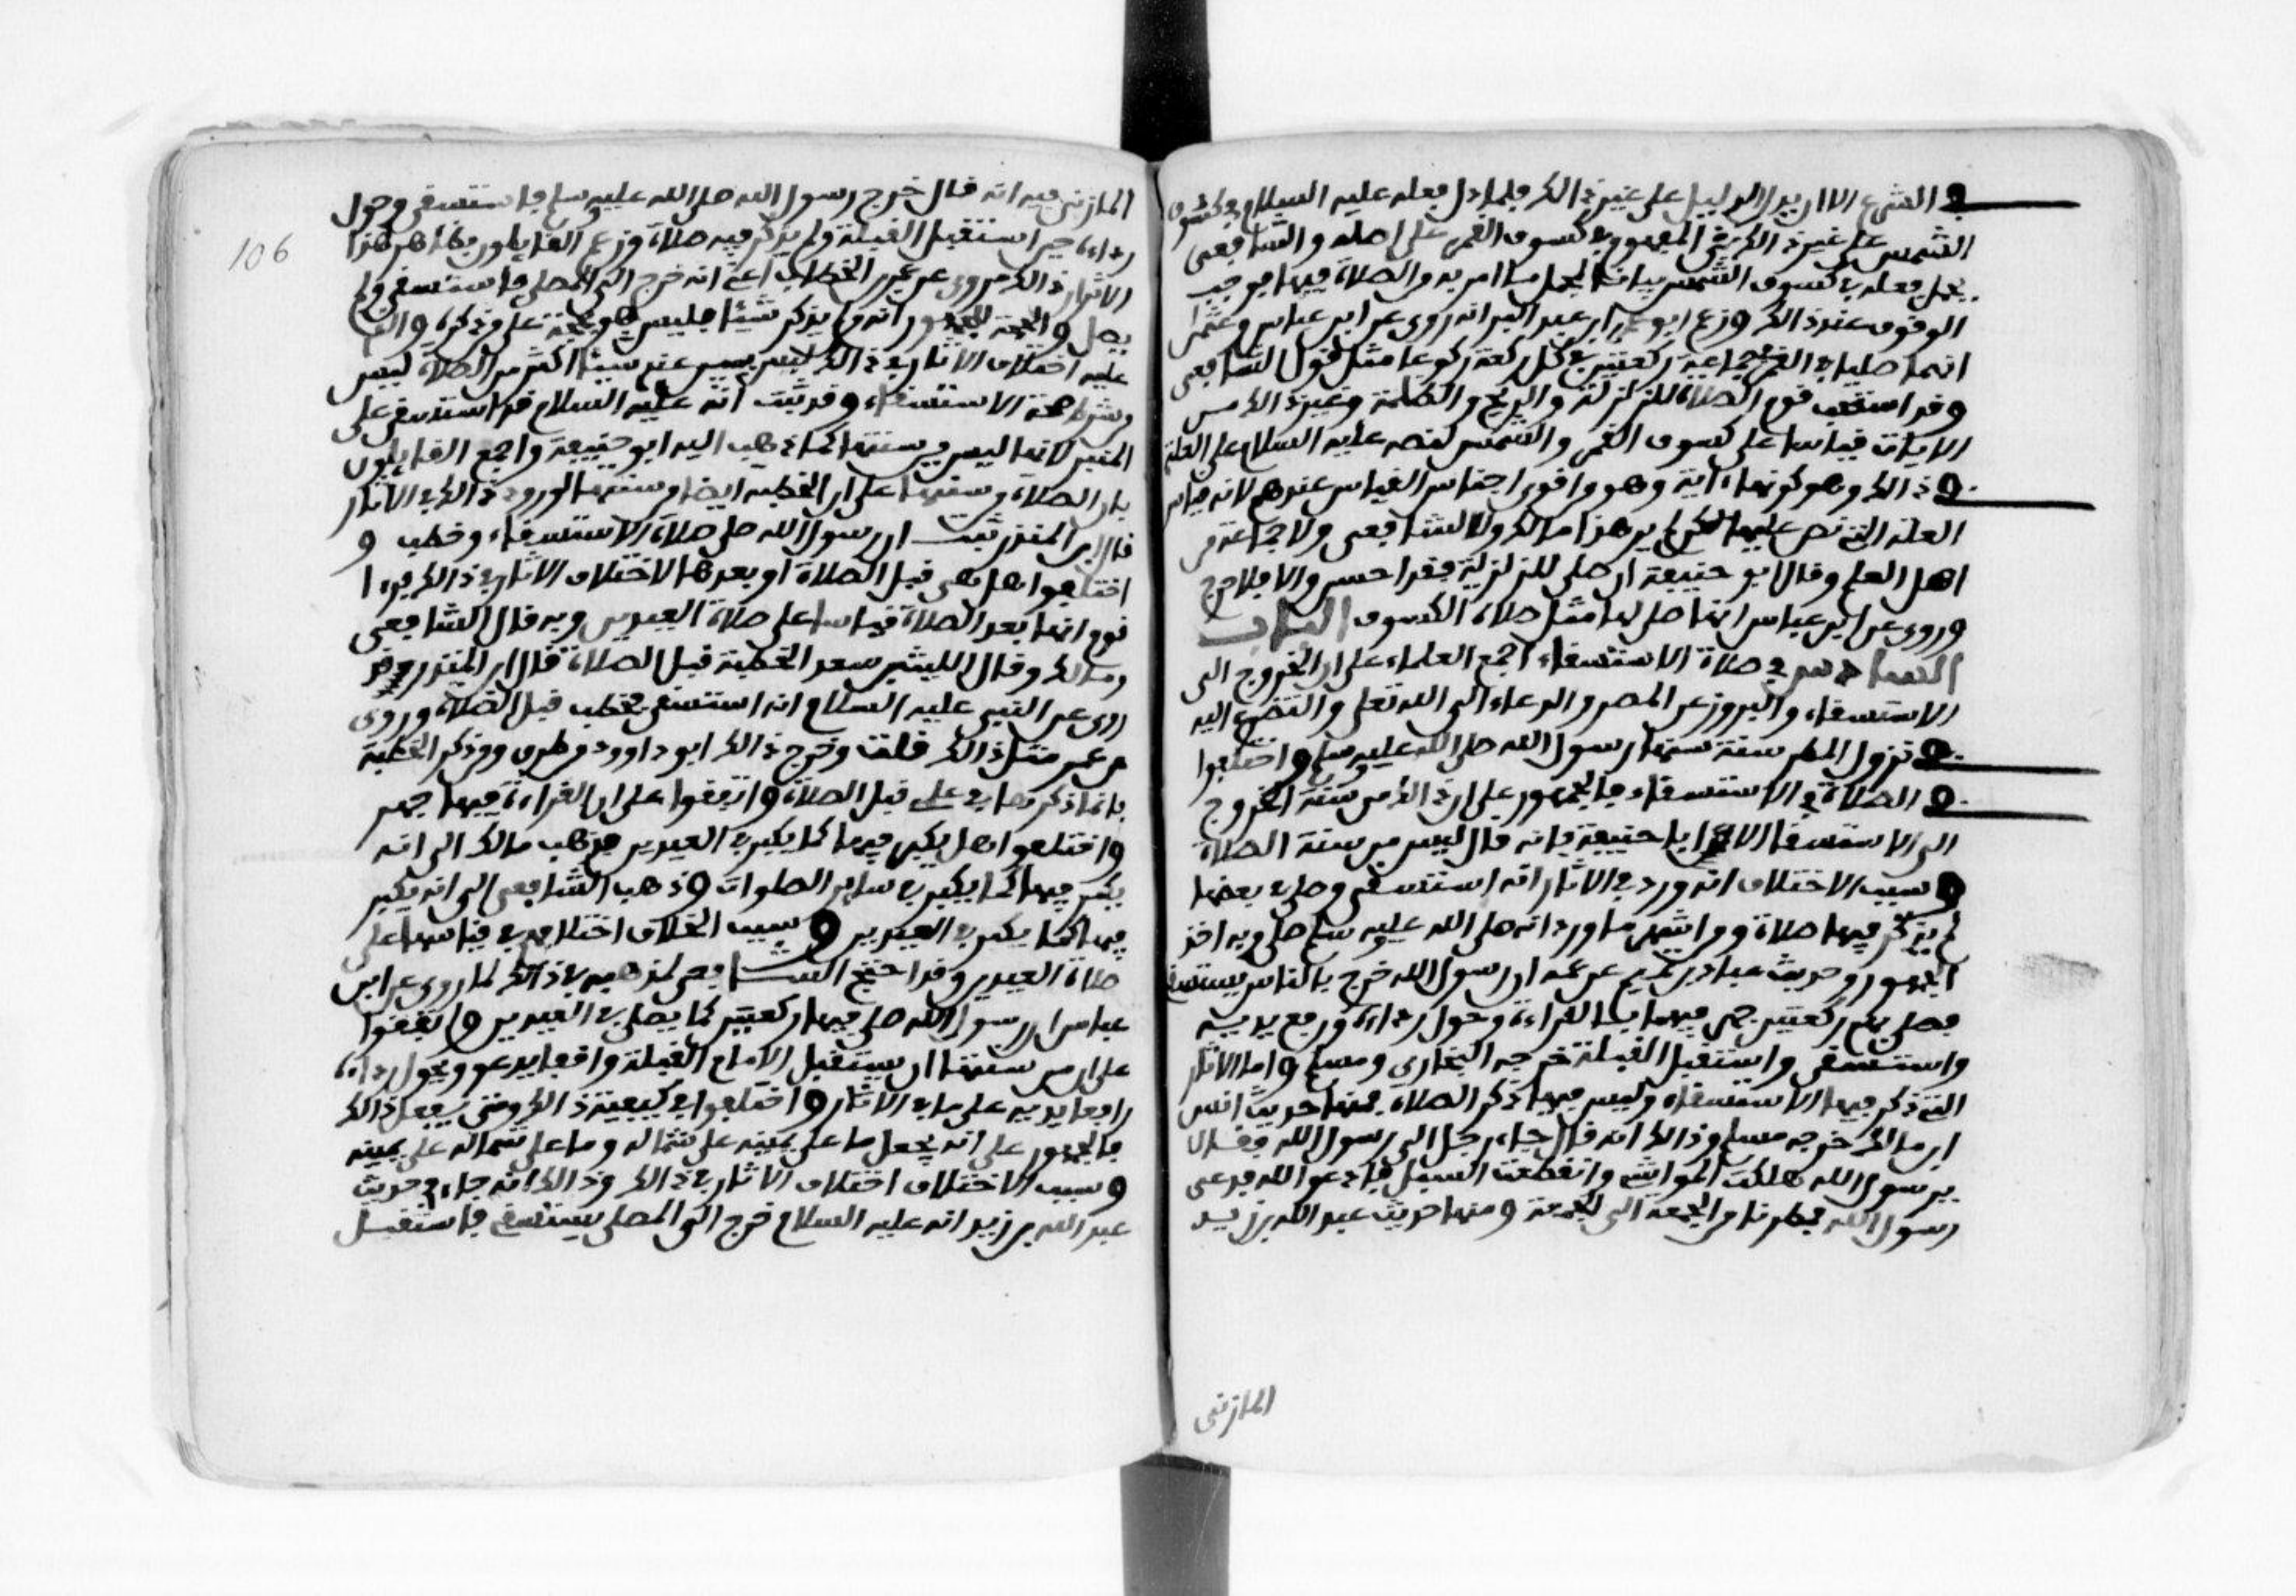 في الشرع الا ان يدل الدليل على غير ذالك فلما دل فعله عليه السلام في كسوف
الشمس على غير ذالك بقي المفهوم في كسوف القمر على اصله والشافعي
يحمل فعله في كسوف الشمس بيانا لمجمل ما امر به من الصلاة فيهما فوجب
الوقوف عند ذالك وزعم ابو عمر بن عبد البر انه روي عن ابن عباس وعثمان
انهما صليا في القمر جماعة ركعتين في كل ركعة ركوعان مثل قول الشافعي
وقد استحب قوم الصلاة للزلزلة والريح والظلمة وغير ذالك من
الايات قياسا على كسوف القمر والشمس لنصه عليه السلام على العلة
في ذالك وهو كونها ءاية وهو من اقوى اجناس القياس عندهم لانه قياس
العلة التي نص عليها لكن لم ير هذا مالك ولا الشافعي ولا جماعة من
اهل العلم وقال ابو حنيفة ان صلى للزلزلة فقد احسن والا فلا حرج
وروي عن ابن عباس انه صلى لها مثل صلاة الكسوف الباب
السادس في صلاة الاستسقاء اجمع العلماء على ان الخروج الى
الاستسقاء والبروز عن المصر والدعاء الى الله تعلى والتضرع اليه
في نزول المطر سنة سنها رسول الله صلى الله عليه وسلم واختلفوا
في الصلاة في الاستسقاء فالجمهور على ان ذالك من سنة الخروج
الى الاستسقا الا ابا حنيفة فانه قال ليس من سنته الصلاة
وسبب الاختلاف انه ورد في الاثار انه استسقى وصلى في بعضها
لم يذكر فيها صلاة ومن اشهر ما ورد انه صلى الله عليه وسلم صلى وبه اخذ
الجمهور وحديث عباد بن تميم عن عمه ان رسول الله خرج بالناس يستسقي
فصلى بهم ركعتين جهر فيهما بالقراءة وحول رداءه ورفع يديه
واستسقى واستقبل القبلة خرجه البخاري ومسلم واما الاثار
التي ذكر فيها الاستسقاء وليس فيها ذكر الصلاة فمنها حديث انس
ابن مالك خرجه مسلم وذالك انه قال جاء رجل الى رسول الله فقال
يرسول الله هلكت المواشي وانقطعت السبل فادعو الله فدعى
رسول الله فمطرنا من الجمعة الى الجمعة ومنها حديث عبد الله بن زيد
المازني
المازني فيه انه قال خرج رسول الله صلى الله عليه وسلم فاستسقى وحول
رداءه حين استقبل القبلة ولم يذكر فيه صلاة وزعم القايلون بظاهر هذا
الاثر ان ذالك مروي عن عمر بن الخطاب اعني انه خرج الى المصلى فاستسقى ولم
يصل والحجة للجمهور انه من لم يذكر شيئا فليس هو بحجة على من ذكره والذي
عليه اختلاف الاثار في ذالك ليس عندي شيئا اكثر من ان الصلاة ليس
من شرط صحة الاستسقاء وقد ثبت انه عليه السلام قد استسقى على
المنبر لانها ليس من سنته كما ذهب اليه ابو حنيفة واجمع القايلون
بان الصلاة من سنتها على ان الخطبة ايضا من سنتها لورود ذالك في الاثار
قال ابن المنذر ثبت ان رسول الله صلى صلاة الاستسقاء وخطب و
اختلفوا هل هي قبل الصلاة او بعدها لاختلاف الاثار في ذالك فرءا
قوم انها بعد الصلاة قياسا على صلاة العيدين وبه قال الشافعي
ومالك وقال الليث بن سعد الخطبة قبل الصلاة قال ابن المنذر وقد
روي عن النبي عليه السلام انه استسقى فخطب قبل الصلاة وروي
عن عمر مثل ذالك قلت وخرج ذالك ابو داوود من طرق ومن ذكر الخطبة
فانما ذكرها في علمي قبل الصلاة واتفقوا على ان القراءة فيها جهر
واختلفوا هل يكبر فيها كما يكبر في العيدين فذهب مالك الى انه
يكبر فيها كما يكبر في ساير الصلوات وذهب الشافعي الى انه يكبر
فيها كما يكبر في العيدين وسبب الخلاف اختلافهم في قياسها على
صلاة العيدين وقد احتج الشافعي لمذهبه في ذالك لما روي عن ابن
عباس ان رسول الله صلى فيها ركعتين كما يصلى في العيدين واتفقوا
على ان من سنتها ان يستقبل الامام القبلة واقفا يدعو ويحول رداءه
رافعا يديه على ما في الاثار واختلفوا في كيفية ذالك ومتى يفعل ذالك
فالجمهور على انه يجعل ما على يمينه على شماله وما على شماله على يمينه
وسبب الاختلاف اختلاف الاثار في ذالك وذالك انه جاء في حديث
عبد الله بن زيد انه عليه السلام خرج الى المصلى يستسقي فاستقبل
106